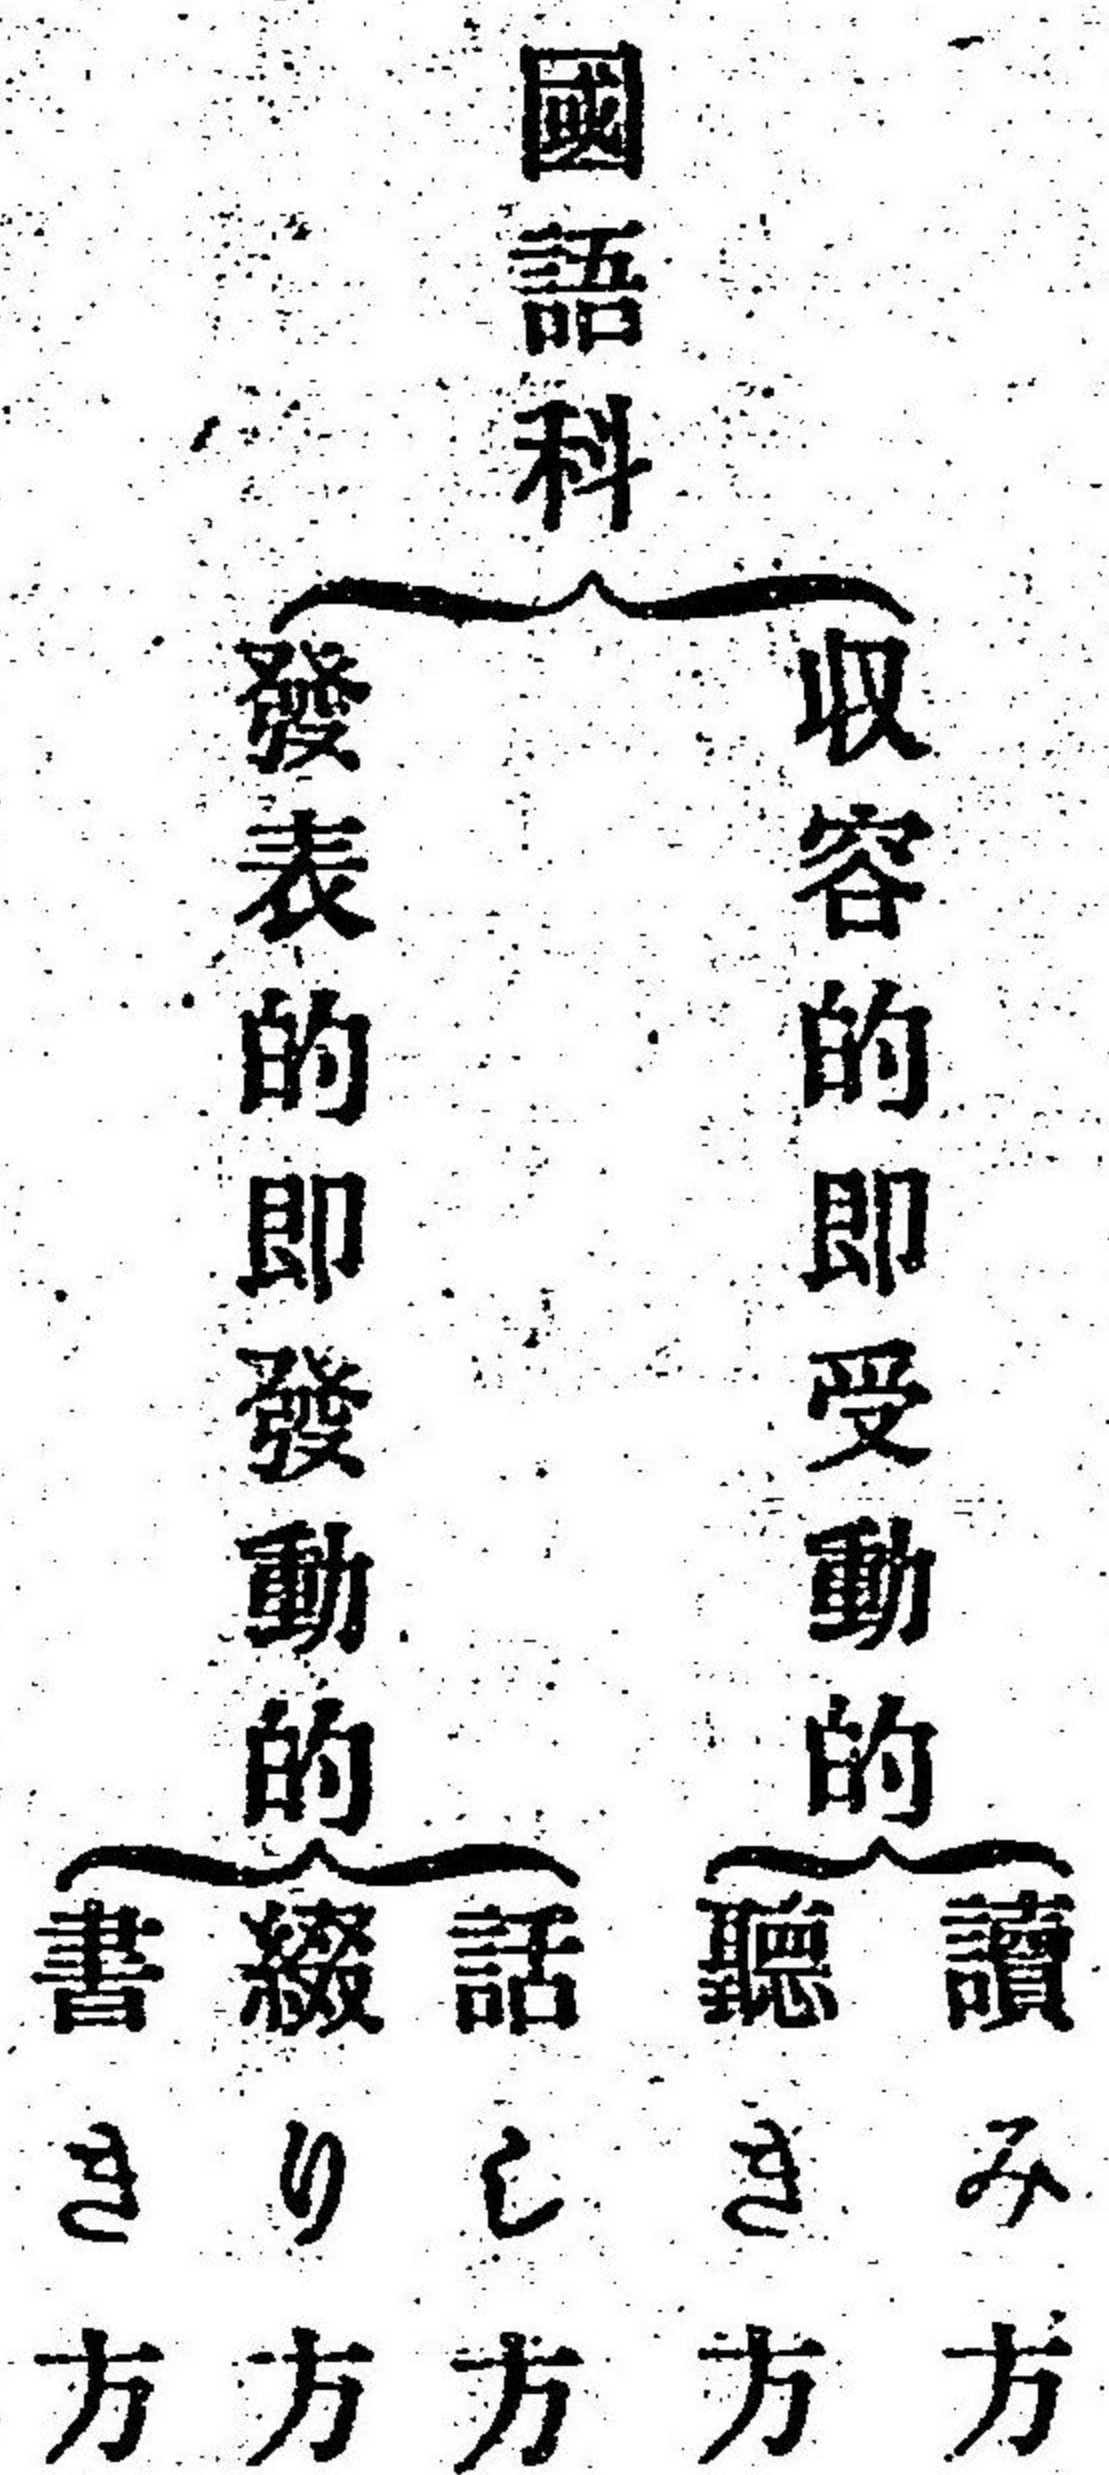 國語科
収容的即受動的
讀み方
聽き方
發表的即發動的
話し方
綴り方
書き方